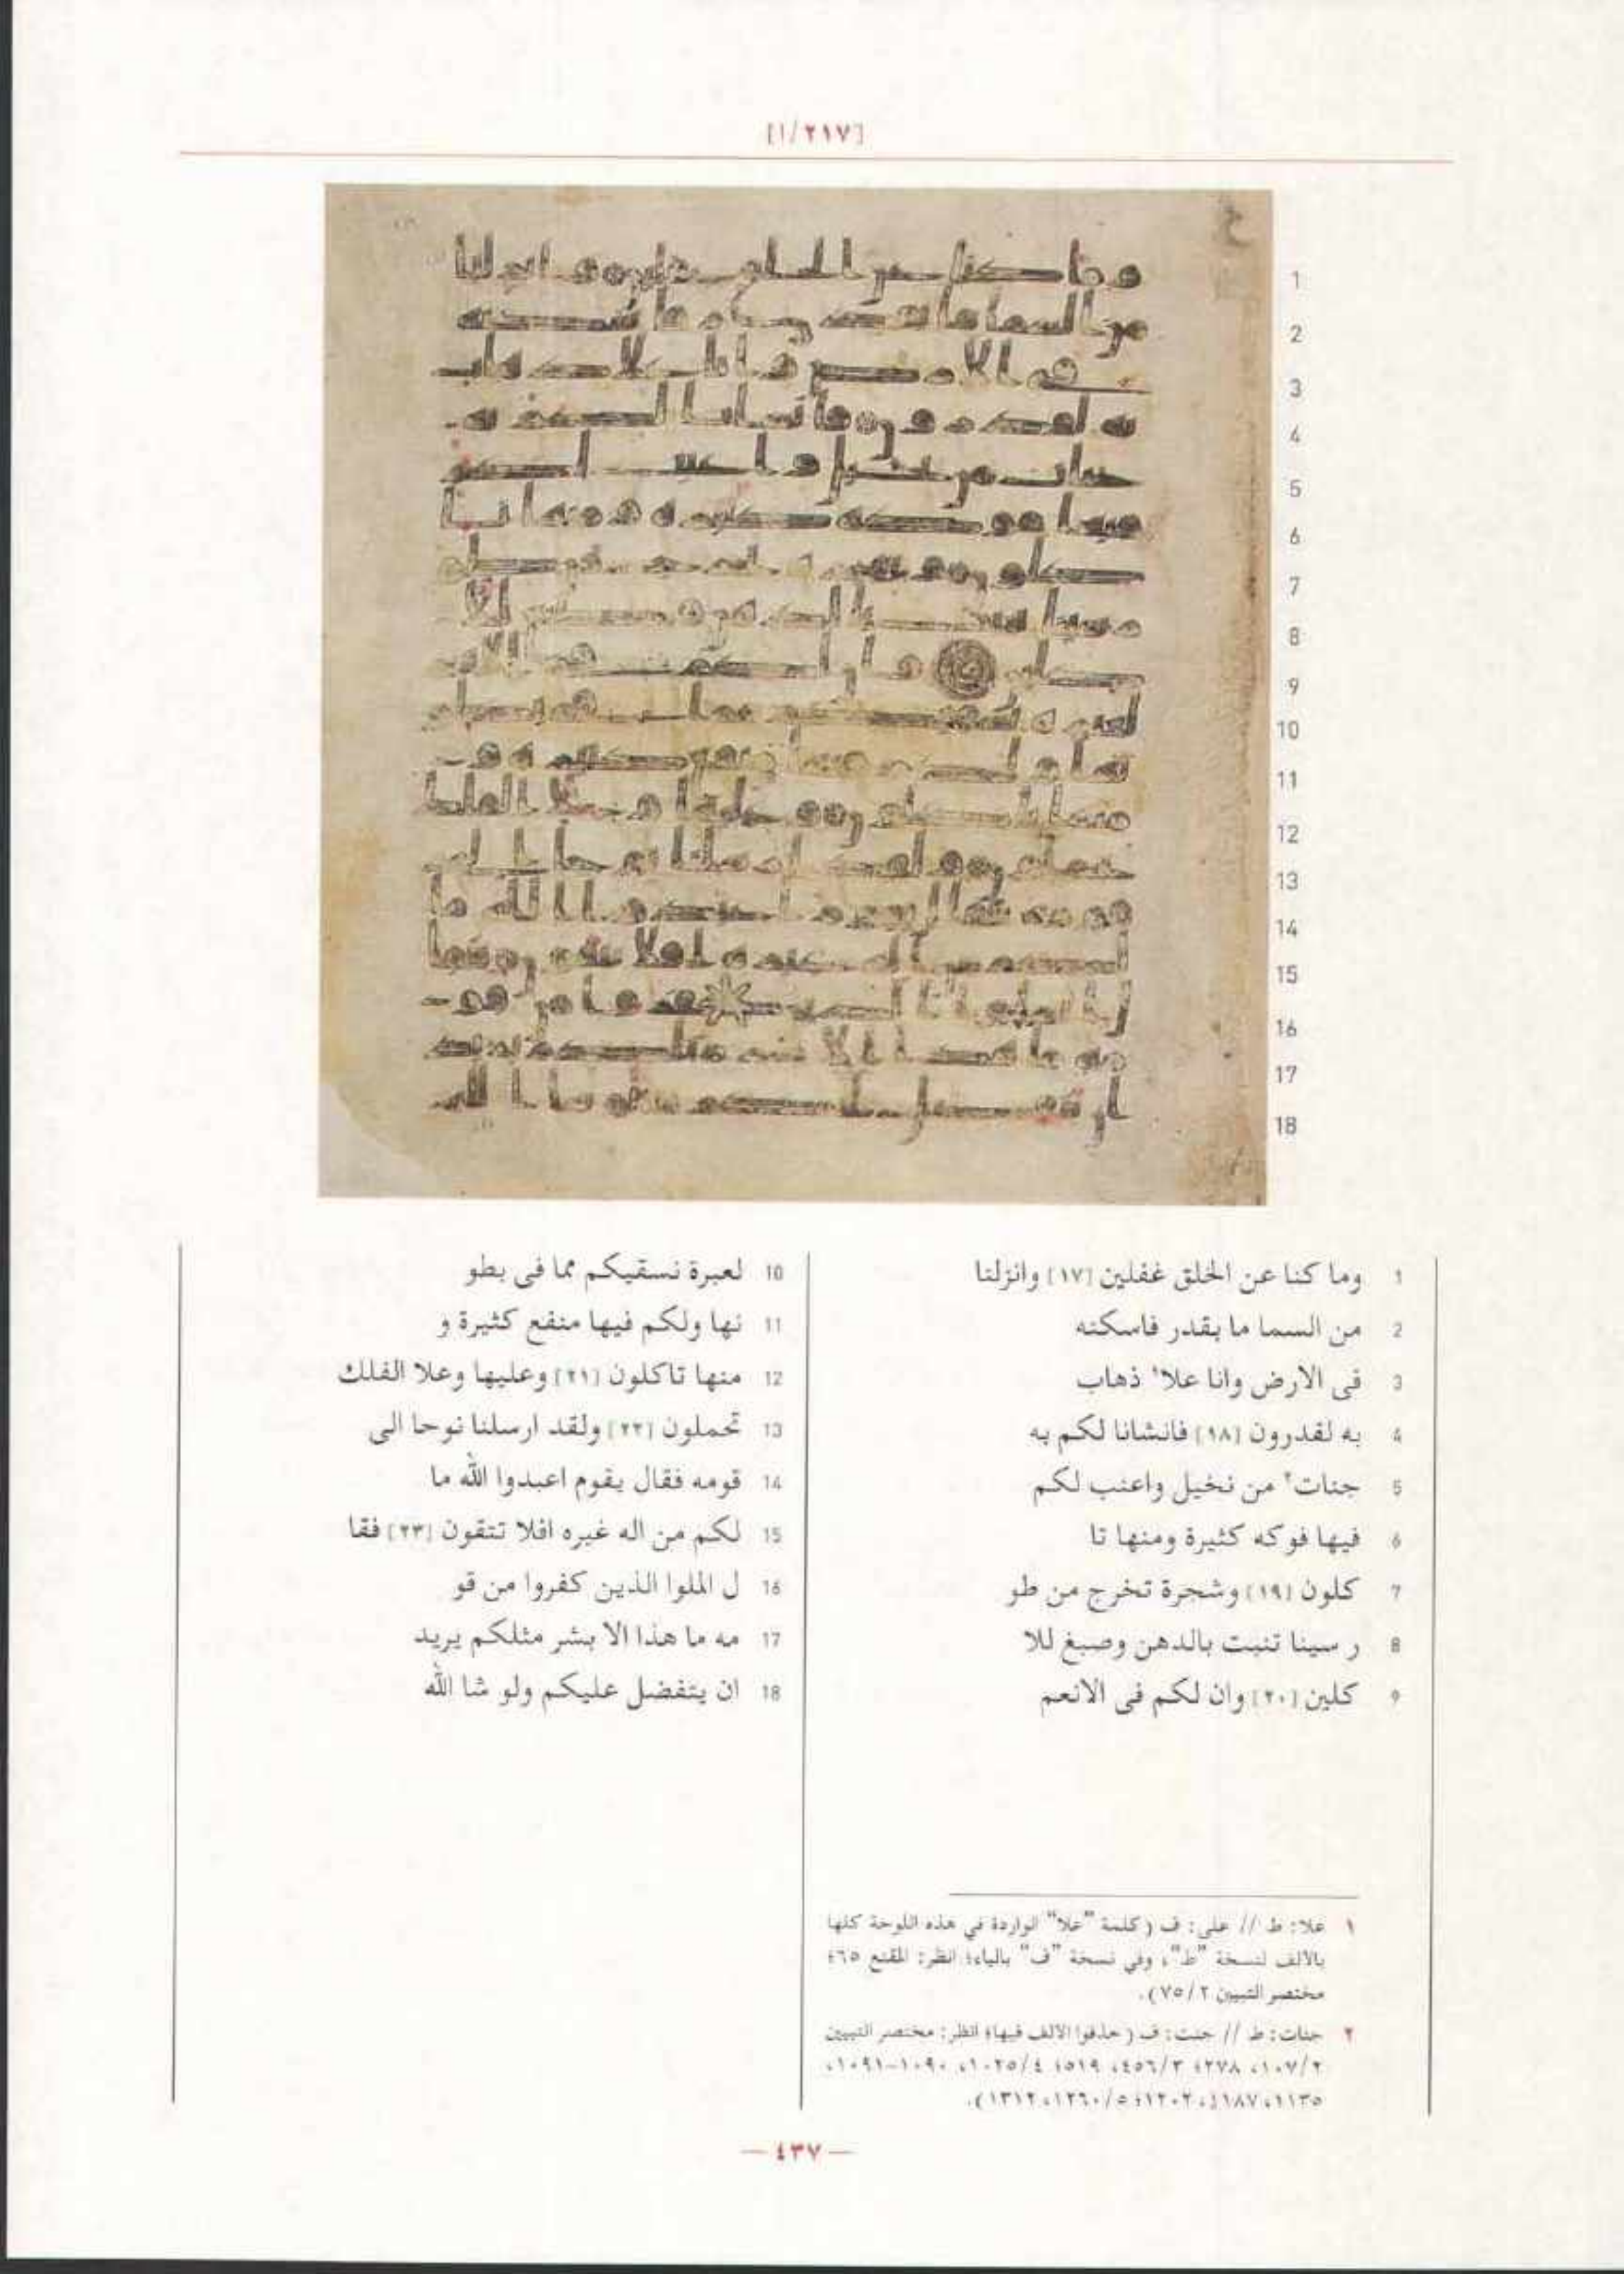 [٢١٧/١]
1
2
3
4
5
6
7
8
9
10
11
12
13
14
15
16
17
18
1 وما كنا عن الخلق غفلين [١٧] وانزلنا
2 من السما ما بقدر فاسكنه
3 فى الارض وانا علا١ ذهاب
4 به لقدرون [١٨] فانشانا لكم به
5 جنات٢ من نخيل واعنب لكم
6 فيها فوكه كثيرة ومنها تا
7 كلون [١٩] وشجرة تخرج من طو
8 ر سينا تنبت بالدهن وصبغ للا
9 كلين [٢٠] وان لكم فى الانعم
10 لعبرة نسقيكم مما فى بطو
11 نها ولكم فيها منفع كثيرة و
12 منها تاكلون [٢١] وعليها وعلا الفلك
13 تحملون [٢٢] ولقد ارسلنا نوحا الى
14 قومه فقال يقوم اعبدوا الله ما
15 لكم من اله غيره افلا تتقون [٢٣] فقا
16 ل الملوا الذين كفروا من قو
17 مه ما هذا الا بشر مثلكم يريد
18 ان يتفضل عليكم ولو شا الله
١ علا: ط // على: ف (كلمة "علا" الواردة في هذه اللوحة كلها
بالألف لنسخة "ط"، وفي نسخة "ف" بالياء؛ انظر: المقنع ٦٥؛
مختصر التبيين ٧٥/٢).
٢ جنات: ط // جنت: ف (حذفوا الألف فيها؛ انظر: مختصر التبيين
١٠٧/٢، ٢٧٨؛ ٤٥٦/٣، ٥١٩؛ ١٠٢٥/٤، ١٠٩٠-١٠٩١،
١١٣٥، ١١٨٧، ١٢٠٢؛ ١٢٦٠/٥، ١٣١٢).
— ٤٣٧ —